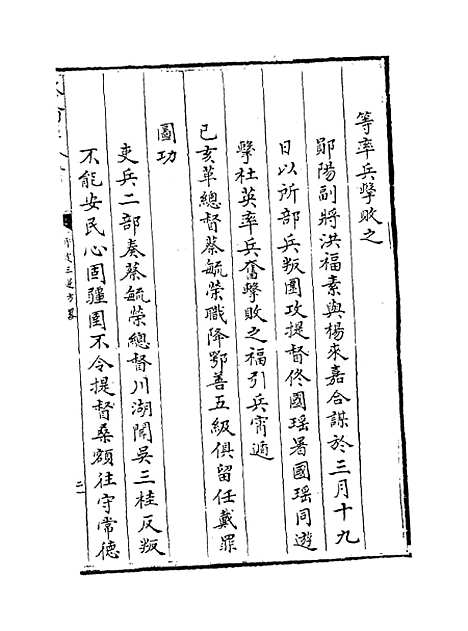 等率兵擊敗之
鄖陽副將洪福素與楊來嘉合謀於三月十九
日以所部兵叛圍攻提督佟國瑤署國瑤同遊
擊杜英率兵奮擊敗之福引兵宵遁
己亥革總督蔡毓榮職降鄂善五級俱留任戴罪
圖功
吏兵二部奏蔡毓榮總督川湖聞吳三桂反叛
不能安民心固疆圉不令提督桑額往守常德
平定三逆方畧
二